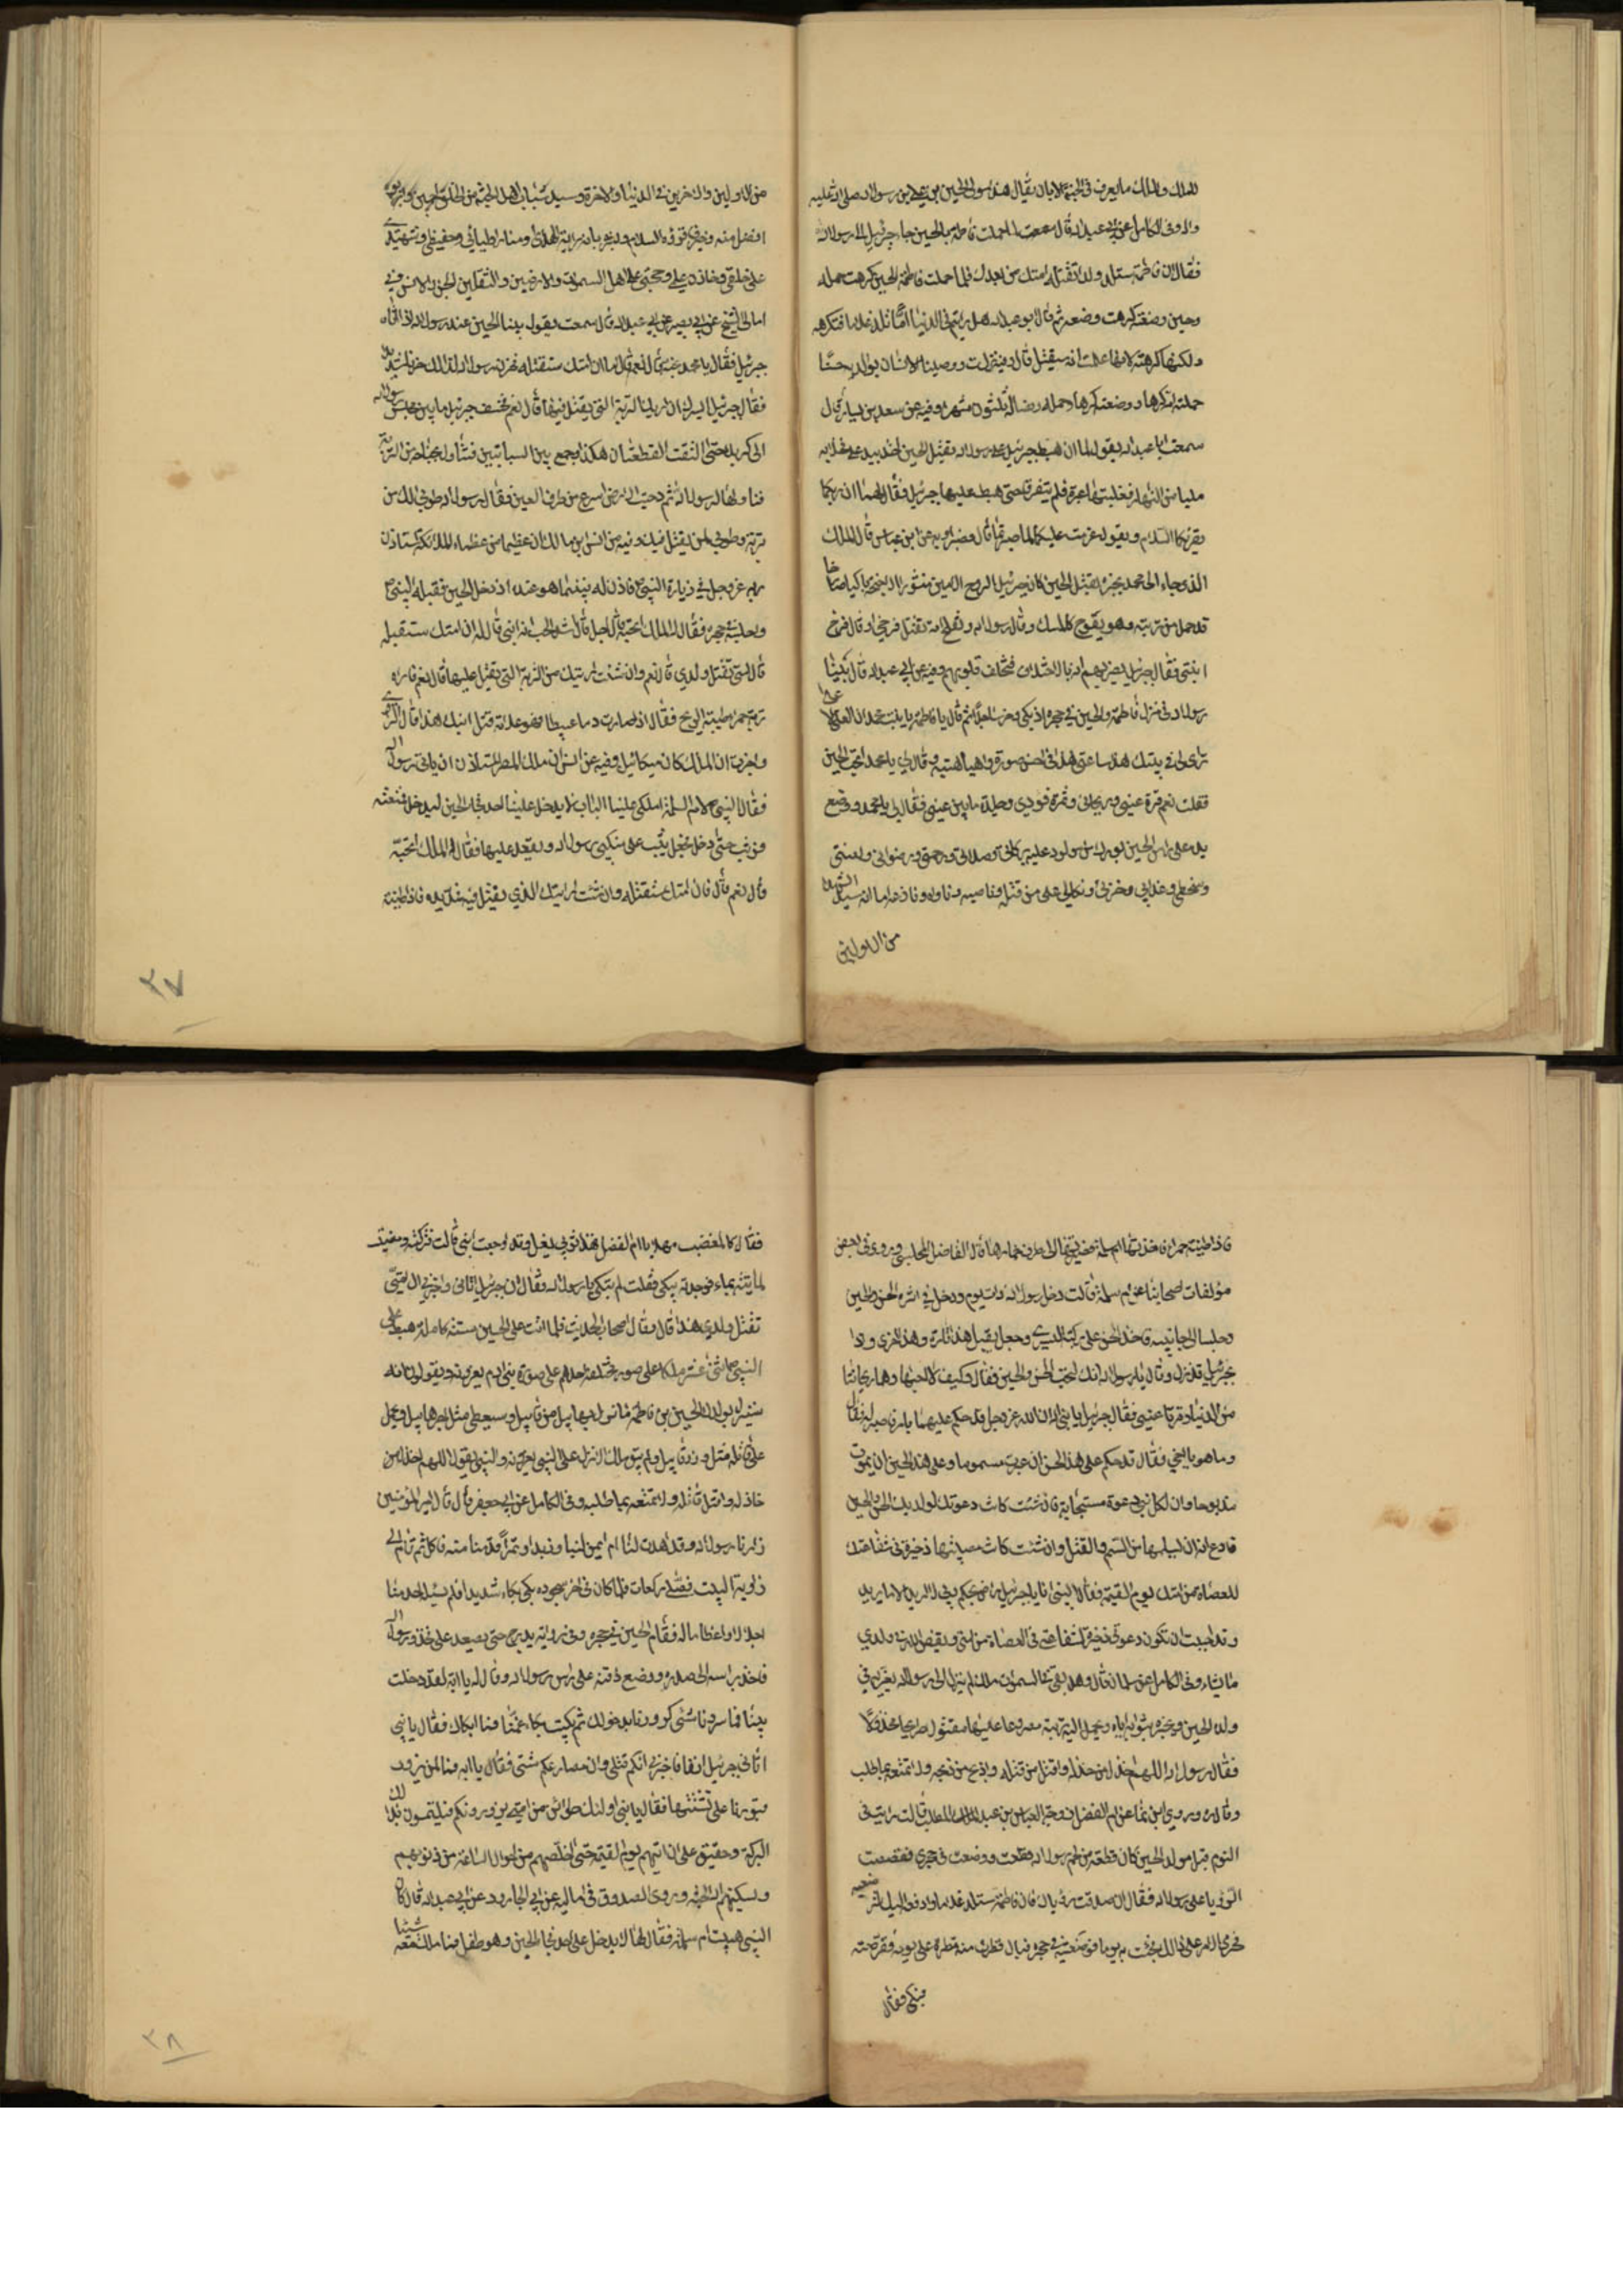 لذلك والملك ما يعرف في الجنة الا بان يقال هذا مولى الحسين بن علي بن رسول الله صلى الله عليه
واله وفي الكامل عن ابي عبد الله قال سمعت لما حملت فاطمة بالحسين جاء جبرئيل الى رسول الله
فقال ان فاطمة ستلد ولدا تقتله امتك من بعدك فلما حملت فاطمة الحسين كرهت حمله
وحين وضعته كرهت وضعه ثم قال ابو عبد الله هل رايتم في الدنيا امّا تلد غلاما فتكرهه
ولكنها كرهته لانها علمت انه سيقتل قال وفيه نزلت ووصينا الانسان بوالديه حسنا
حملته امه كرها ووضعته كرها وحمله وفصاله ثلثون شهرا وفيه عن سعد بن يسار قال
سمعت ابا عبد الله يقول لما ان هبط جبرئيل على رسول الله بقتل الحسين اخذ بيد علي فخلا به
مليا من النهار فغلبتهما عبرة فلم يتفرقا حتى هبط عليهما جبرئيل فقال لهما ان ربكما
يقرئكما السلام ويقول عزمت عليكما لما صبرتما قال فصبرا وفيه عن ابن عباس قال الملك
الذي جاء الى محمد يخبره بقتل الحسين كان جبرئيل الروح الامين منشور الاجنحة باكيا صارخا
قد حمل من تربته وهو يفوح كالمسك وقال رسول الله وتفلح امة تقتل فرخي او قال فرخ
ابنتي فقال جبرئيل يضربهم الله بالاختلاف فتختلف قلوبهم وفيه عن ابي عبد الله قال بينا
رسول الله في منزل فاطمة والحسين في حجره اذ بكى وخر ساجدا ثم قال يا فاطمة يا بنت محمد ان العلي الاعلى
ترائى لي في بيتك هذا ساعتي هذه في احسن صورة واهيا هيئة وقال لي يا محمد اتحب الحسين
فقلت نعم قرة عيني وريحانتي وثمرة فؤادي وجلدة ما بين عيني فقال لي يا محمد ووضع
يده على راس الحسين بورك من مولود عليه بركاتي وصلواتي ورحمتي ورضواني ولعنتي
وسخطي وعذابي وخزيي ونكالي على من قتله وناصبه وناواه ونازعه اما انه سيد الشهداء
من الاولين
من الاولين والاخرين في الدنيا والاخرة وسيد شباب اهل الجنة من الخلق اجمعين وابوه
افضل منه وخير فاقرئه السلام وبشره بانه راية الهدى ومنار اوليائي وحفيظي وشهيدي
على خلقي وخازن علمي وحجتي على اهل السموات والارضين والثقلين الجن والانس وفي
امالي الشيخ عن ابي بصير عن ابي عبد الله قال سمعته يقول بينا الحسين عند رسول الله اذ اتاه
جبرئيل فقال يا محمد اتحبه قال نعم قال اما ان امتك ستقتله فحزن رسول الله لذلك حزنا شديدا
فقال جبرئيل ايسرك ان اريك التربة التي يقتل فيها قال نعم فخسف جبرئيل ما بين مجلس رسول الله
الى كربلا حتى التقت القطعتان هكذا وجمع بين السبابتين فتناول بجناحيه من التربة
فناولها لرسول الله ثم دحيت الارض اسرع من طرف العين فقال رسول الله طوبى لك من
تربة وطوبى لمن يقتل فيك وفيه عن انس بن مالك ان عظيما من عظماء الملائكة استاذن
ربه عز وجل في زيارة النبي فاذن له فبينما هو عنده اذ دخل الحسين فقبله النبي
واجلسه في حجره فقال له الملك اتحبه قال اجل اشد الحب انه ابني قال له ان امتك ستقتله
قال امتي تقتل ولدي قال نعم وان شئت اريتك من التربة التي يقتل عليها قال نعم فاراه
تربة حمراء طيبة الريح فقال اذا صارت دما عبيطا فهو علامة قتل ابنك هذا قال
واخبرت ان الملك كان ميكائيل وفيه عن انس ان ملك المطر استاذن ان ياتي رسول الله
فقال النبي لام سلمة املكي علينا الباب لا يدخل علينا احد فجاء الحسين ليدخل فمنعته
فوثب حتى دخل فجعل يثب على منكبي رسول الله ويقعد عليهما فقال له الملك اتحبه
قال نعم قال فان امتك ستقتله وان شئت اريتك المكان الذي يقتل فيه فمد يده فاذا طينة
فاذا طينة حمراء فاخذتها ام سلمة فصيرتها الى طرف خمارها قال الفاضل المجلسي وروي في بعض
مؤلفات اصحابنا عن ام سلمة قالت دخل رسول الله ذات يوم ودخل في اثره الحسن والحسين
وجلسا الى جانبيه فاخذ الحسن على ركبته اليسرى وجعل يقبل هذا تارة وهذا اخرى واذا
بجبرئيل قد نزل وقال يا رسول الله انك لتحب الحسن والحسين فقال وكيف لا احبهما وهما ريحانتاي
من الدنيا وقرتا عيني فقال جبرئيل يا نبي الله ان الله عز وجل قد حكم عليهما بامر فاصبر له فقال
وما هو يا اخي فقال قد حكم على هذا الحسن ان يموت مسموما وعلى هذا الحسين ان يموت
مذبوحا وان لكل نبي دعوة مستجابة فان شئت كانت دعوتك لولديك الحسن والحسين
فادع الله ان يسلمهما من السم والقتل وان شئت كانت مصيبتهما ذخيرة في شفاعتك
للعصاة من امتك يوم القيمة فقال النبي انا يا جبرئيل راض بحكم ربي لا اريد الا ما يريد
وقد احببت ان تكون دعوتي ذخيرة لشفاعتي في العصاة من امتي ويقضي الله في ولدي
ما يشاء وفي الكامل عن سلمان قال وهل بقي في السموات ملك لم ينزل الى رسول الله يعزيه في
ولده الحسين ويخبره بثواب الله اياه ويحمل اليه تربته مصروعا عليها مقتولا طريحا مخذولا
فقال رسول الله اللهم اخذل من خذله واقتل من قتله واذبح من ذبحه ولا تمتعه بما طلب
وقال وروى ابن نما عن ام الفضل زوجة العباس بن عبد المطلب قالت رايت في
النوم قبل مولد الحسين كان قطعة من لحم رسول الله قطعت ووضعت في حجري فقصصت
الرؤيا على رسول الله فقال ان صدقت رؤياك فان فاطمة ستلد غلاما وادفعه اليك لترضعيه
فجرى الامر على ذلك فجئت به يوما فوضعته في حجره فبال فقطرت منه قطرة على ثوبه فقرصته
فبكى فقال
فقال كالمغضب مهلا يا ام الفضل فهذا ثوبي يغسل وقد اوجعت ابني قالت فتركته ومضيت
لاتيه بماء فوجدته يبكي فقلت لم تبكي يا رسول الله فقال ان جبرئيل اتاني واخبرني ان امتي
تقتل ولدي هذا قال وقال اصحاب الحديث فلما اتت على الحسين سنة كاملة هبط على
النبي اثنى عشر ملكا على صور مختلفة احدهم على صورة بني ادم يعزونه ويقولون انه
سينزل بولدك الحسين بن فاطمة ما نزل بهابيل من قابيل وسيعطى مثل اجر هابيل ويحمل
على قاتله مثل وزر قابيل ولم يبق ملك الا نزل على النبي يعزونه والنبي يقول اللهم اخذل من
خاذله واقتل قاتله ولا تمتعه بما طلبه وفي الكامل عن ابي جعفر قال قال امير المؤمنين
زارنا رسول الله وقد اهدت لنا ام ايمن لبنا وزبدا وتمرا فقدمنا منه فاكل ثم قام الى
زاوية البيت فصلى ركعات فلما كان في اخر سجوده بكى بكاء شديدا فلم يسئله احد منا
اجلالا واعظاما له فقام الحسين في حجره وفي رواية يدرج حتى يصعد على فخذي رسول الله
فاخذ براسه الى صدره ووضع ذقنه على راس رسول الله وقال له يا ابه لقد دخلت
بيتنا فما سررنا بشئ كسرورنا بدخولك ثم بكيت بكاء غمنا فما ابكاك فقال يا بني
اتاني جبرئيل انفا فاخبرني انكم قتلى وان مصارعكم شتى فقال يا ابه فما لمن يزور
قبورنا على تشتتها فقال يا بني اولئك طوائف من امتي يزورونكم فيلتمسون بذلك
البركة وحقيق علي ان اتيهم يوم القيمة حتى اخلصهم من اهوال الساعة من ذنوبهم
ويسكنهم الله الجنة وروى الصدوق في اماليه عن ابي الجارود عن ابي عبد الله قال كان
النبي في بيت ام سلمة فقال لها لا يدخل علي احد فجاء الحسين وهو طفل فما ملكت معه شيئا
٣٧
٣٨